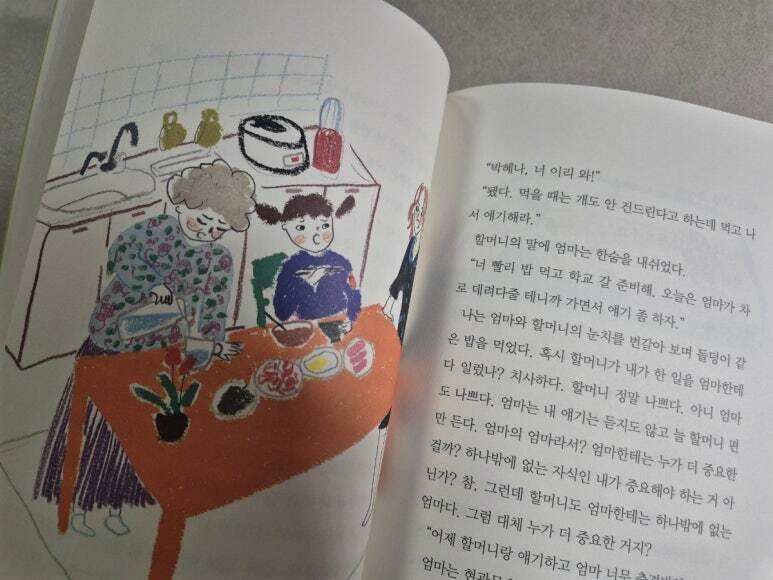 “박혜나, 너 이리 와!”
“됐다. 먹을 때는 개도 안 건드린다고 하는데 먹고 나
서 얘기해라.”
할머니의 말에 엄마는 한숨을 내쉬었다.
“너 빨리 밥 먹고 학교 갈 준비해. 오늘은 엄마가 차
로 데려다줄 테니까 가면서 얘기 좀 하자.”
나는 엄마와 할머니의 눈치를 번갈아 보며 돌덩이 같
은 밥을 먹었다. 혹시 할머니가 내가 한 일을 엄마한테
다 일렀나? 치사하다. 할머니 정말 나쁘다. 아니 엄마
도 나쁘다. 엄마는 내 얘기는 듣지도 않고 늘 할머니 편
만 든다. 엄마의 엄마라서? 엄마한테는 누가 더 중요한
걸까? 하나밖에 없는 자식인 내가 중요해야 하는 거 아
닌가? 참, 그런데 할머니도 엄마한테는 하나밖에 없는
엄마다. 그럼 대체 누가 더 중요한 거지?
“어제 할머니랑 얘기하고 엄마 너무
엄마는